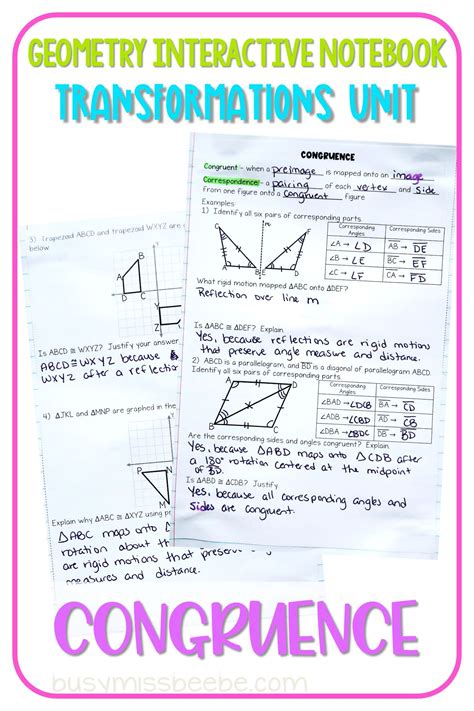 GEOMETRY INTERACTIVE NOTEBOOK
TRANSFORMATIONS UNIT
CONGRUENCE
Congruent - when a preimage is mapped onto an image
Correspondence - a pairing of each vertex and side
from one figure onto a congruent figure
Examples:
1) Identify all six pairs of corresponding parts.
Corresponding Angles Corresponding Sides
∠A → ∠D AB → DE
∠B → ∠E BC → EF
∠C → ∠F CA → FD
A B E D
C F
m
What rigid motion mapped ΔABC onto ΔDEF?
Reflection over line m
Is ΔABC ≅ ΔDEF? Explain.
Yes, because reflections are rigid motions
that preserve angle measure and distance.
2) ABCD is a parallelogram, and BD is a diagonal of parallelogram ABCD.
Identify all six pairs of corresponding parts.
Corresponding Angles Corresponding Sides
∠BAD → ∠DCB BA → CD
∠ADB → ∠CBD AD → CB
∠DBA → ∠BDC DB → BD
A D
B C
Are the corresponding sides and angles congruent? Explain.
Yes, because ΔABD maps onto ΔCDB after
a 180° rotation centered at the midpoint
of BD.
Is ΔABD ≅ ΔCDB? Justify
Yes, because all corresponding angles and
sides are congruent.
3) Trapezoid ABCD and trapezoid WXYZ are
below
B
A
D C
Is ABCD ≅ WXYZ? Justify your answer
ABCD ≅ WXYZ because
WXYZ after a reflection
4) ΔJKL and ΔMNP are graphed in the
P N
M
Explain why ΔABC ≅ ΔXYZ using
ΔABC maps onto
rotation about th
are rigid motions that preserve
measures and distance.
CONGRUENCE
busymissbeebe.com